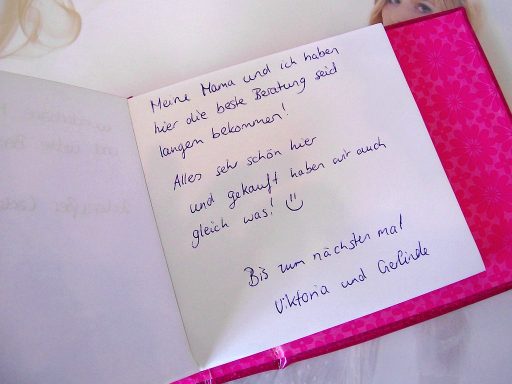 Meine Mama und ich haben
hier die beste Beratung seid
langem bekommen!
Alles sehr schön hier
und gekauft haben wir auch
gleich was! :)
Bis zum nächsten mal
Viktoria und Gerlinde